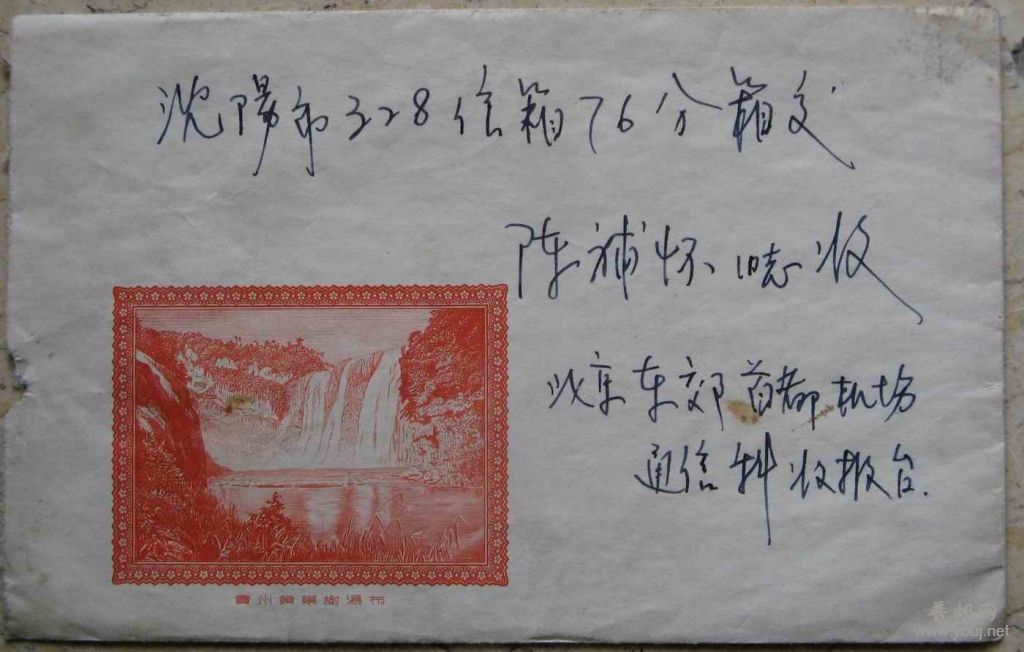 沈陽市328信箱76分箱交
陈補怀同志收
北京东郊首都机场
通信科收报台.
貴州黄菓樹瀑布
普邮网
www.youj.net